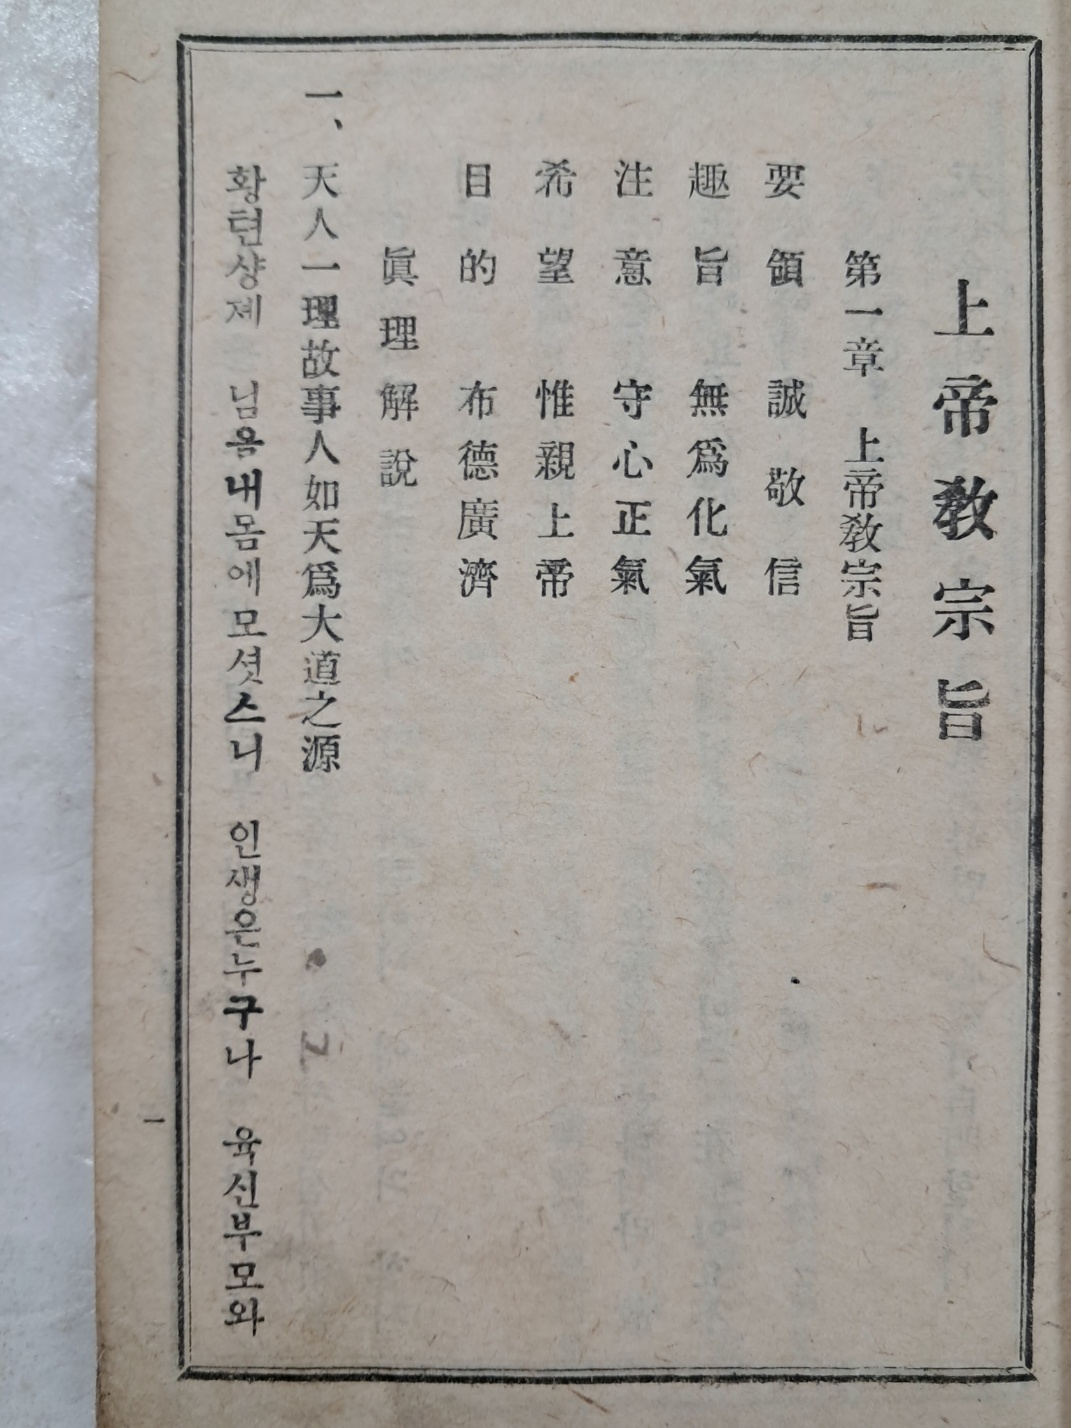 上帝敎宗旨
第一章 上帝敎宗旨
要領 誠敬信
趣旨 無爲化氣
注意 守心正氣
希望 惟親上帝
目的 布德廣濟
眞理解說
一、天人一理故事人如天爲大道之源
황텬샹제 님음내몸에모셧스니 인생은누구나 육신부모와
一